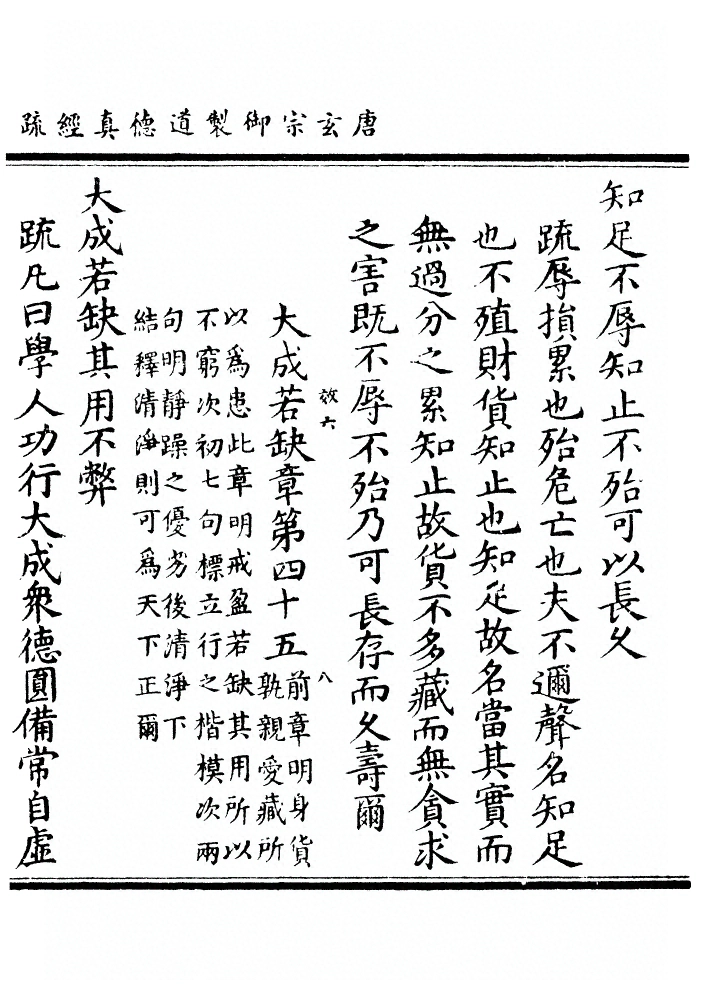 唐玄宗御製道德真經疏
知足不辱知止不殆可以長久
疏辱損累也殆危亡也夫不邇聲名知足
也不殖財貨知止也知足故名當其實而
無過分之累知止故貨不多藏而無貪求
之害既不辱不殆乃可長存而久壽爾
效六
八
大成若缺章第四十五
前章明身貨
孰親愛藏所
以爲患此章明戒盈若缺其用所以
不窮次初七句標立行之楷模次兩
句明靜躁之優劣後清淨下
結釋清淨則可爲天下正爾
大成若缺其用不弊
疏凡曰學人功行大成衆德圓備常自虛